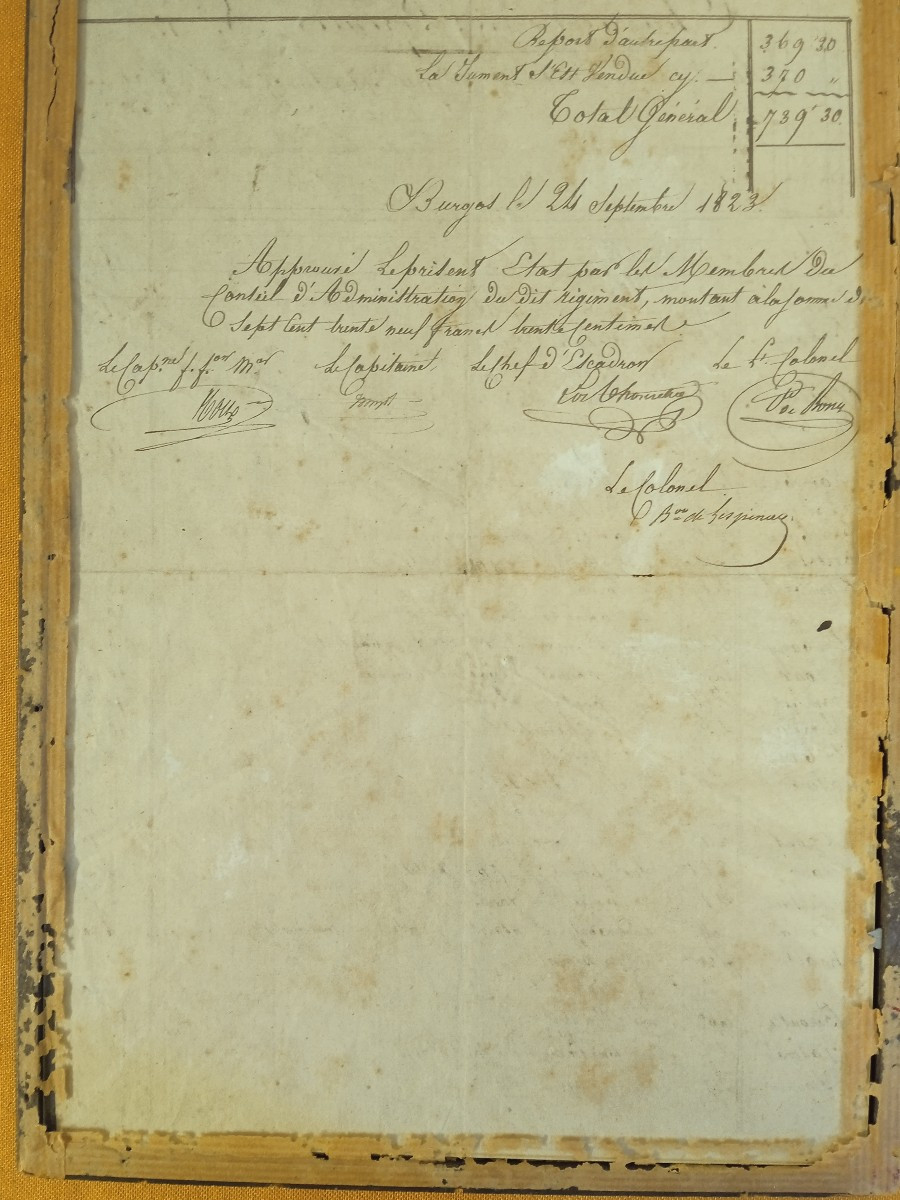 Report d'autrepart. 369" 30
La Jument s'Est Vendue cy. — 370 "
Total Général 739" 30.
Burgos le 24 Septembre 1823.
Approuvé Le présent Etat par les Membres Du
Conseil d'Administration du dit régiment, montant à la somme de
Sept Cent trente neuf francs trente Centimes
Le Cap.ne f. f.on M.or Le Capitaine Le Chef d'Escadron Le Lt. Colonel
Le Colonel
B.on de Lespinay